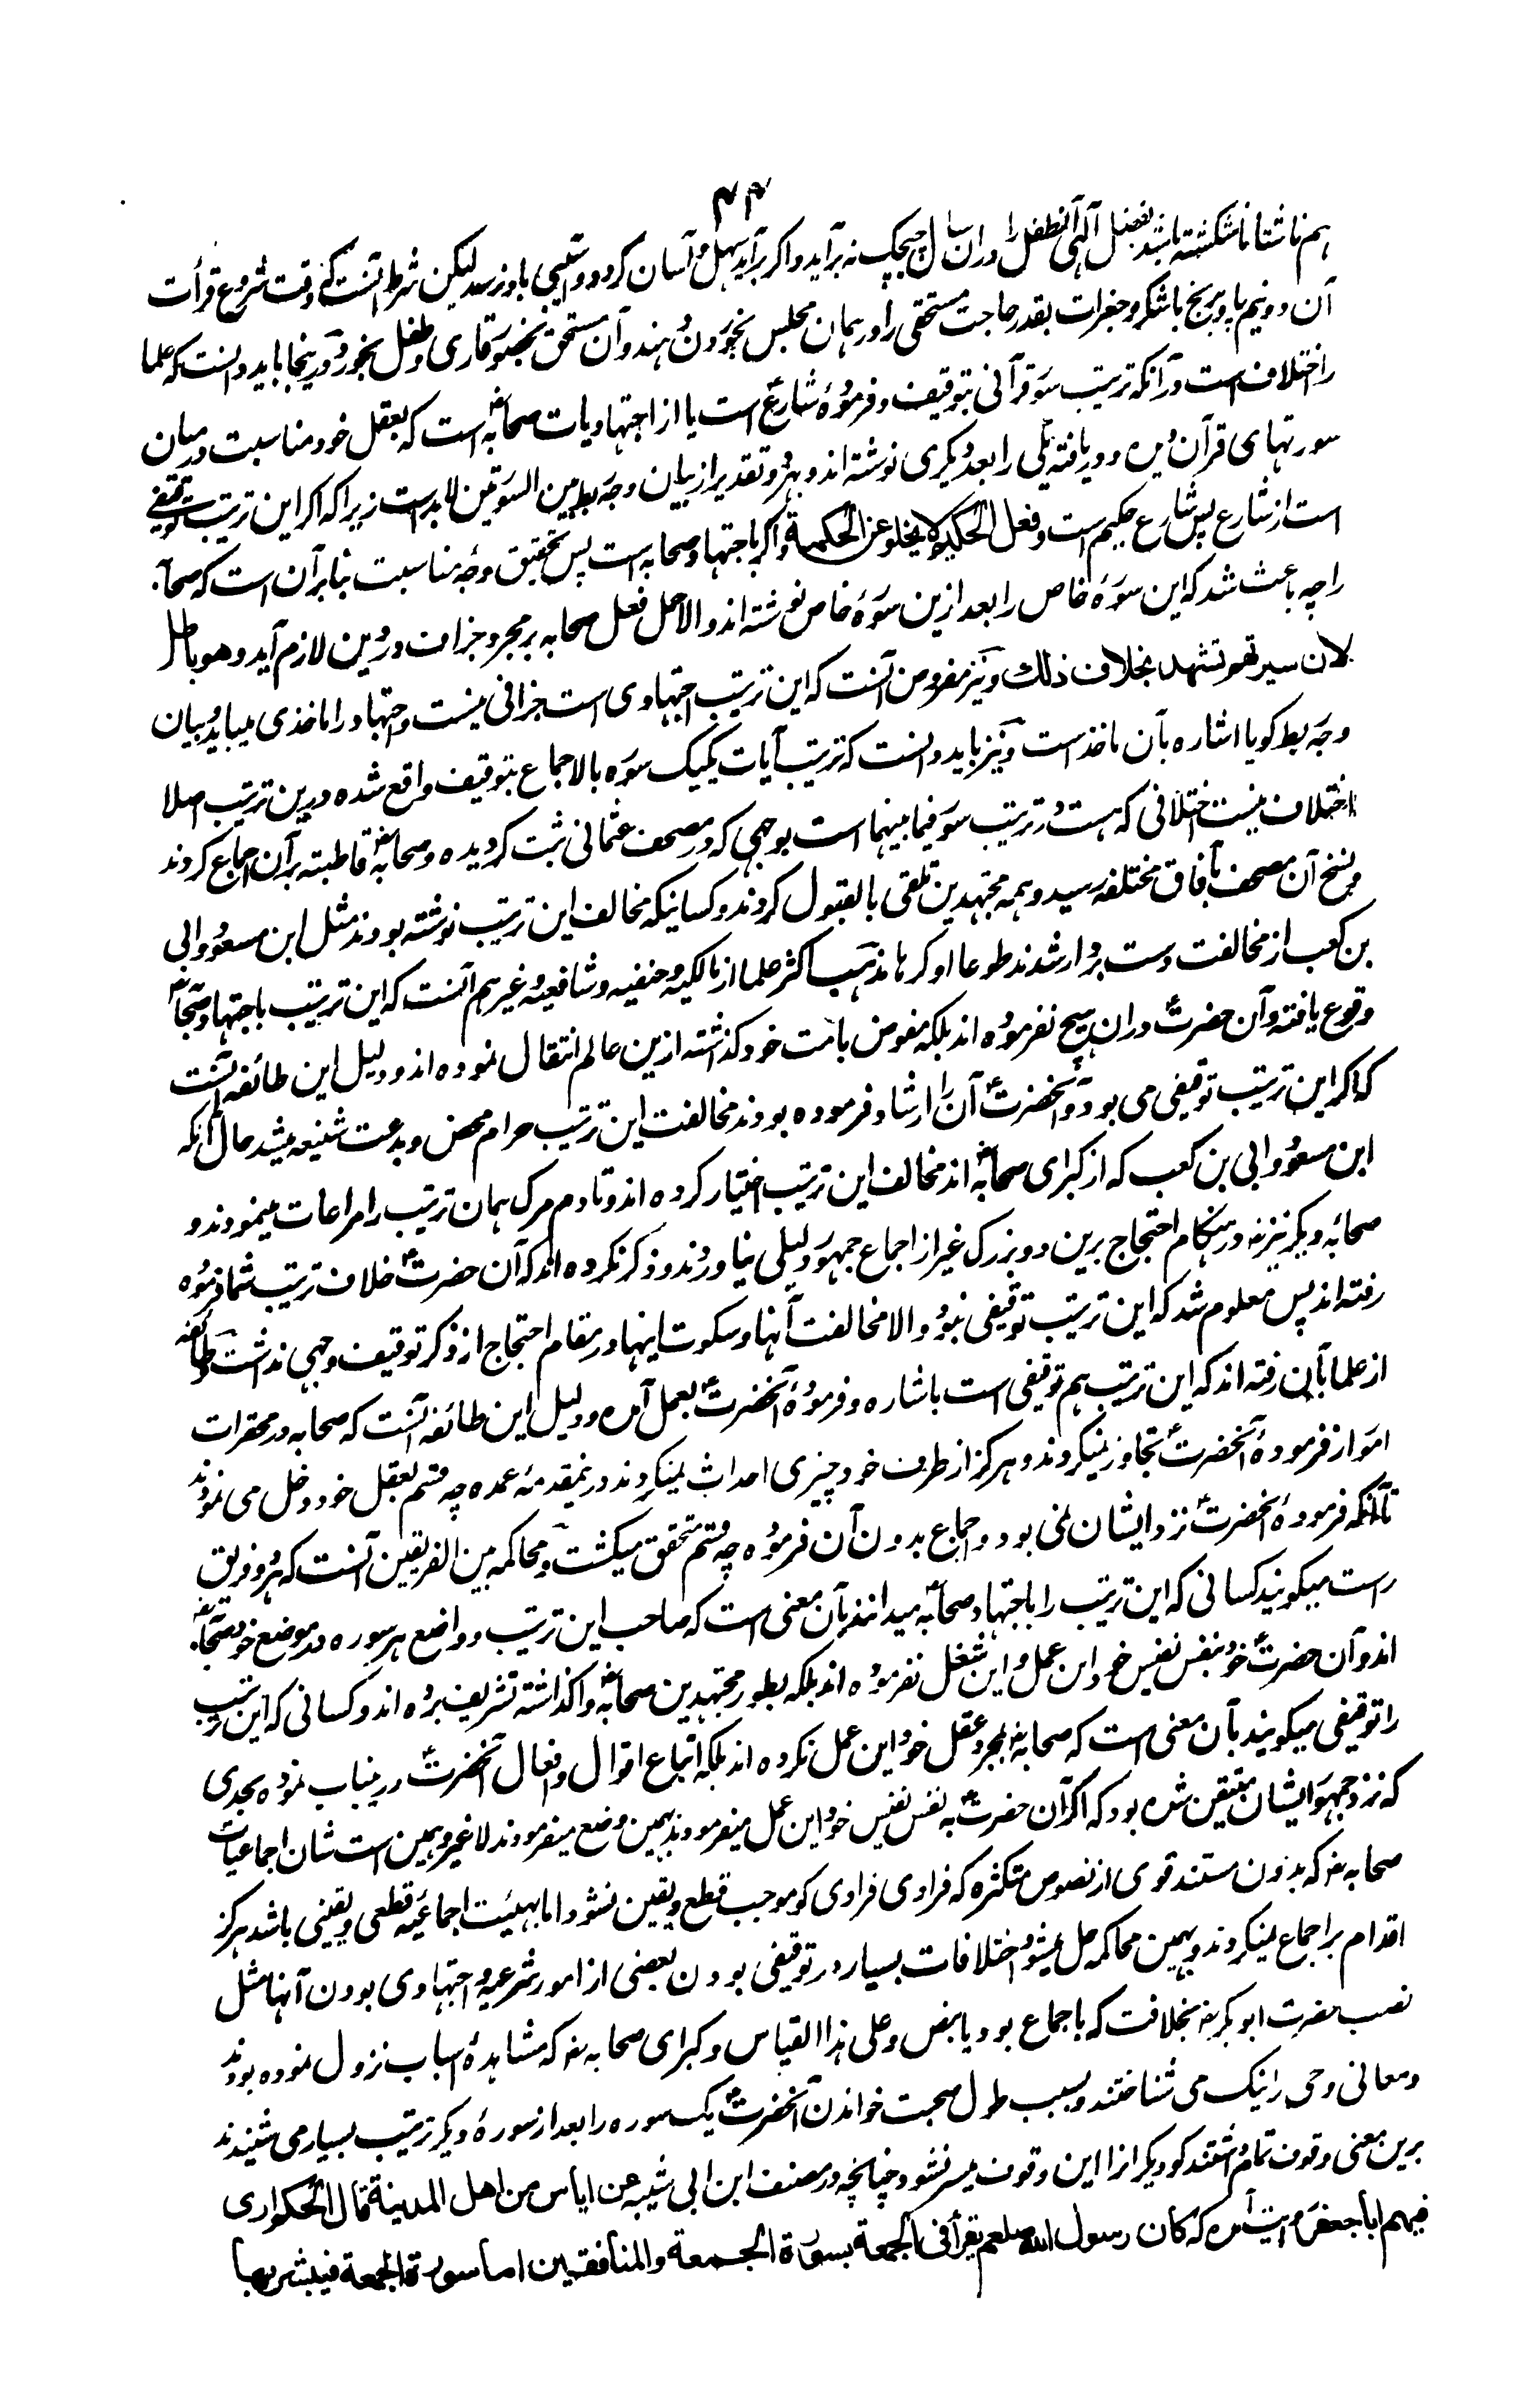 ۴۴
هم ناشتا ناشکسته باشد بفضل الهی آنطفل را دران سال چیچک نه برآید و اگر برآید سهل و آسان گردد و آسیبی باو نرسد لیکن شرط آنست که وقت شروع قرأت
آن دو نیم پاو برنج باشکر و جغرات بقدر حاجت مستحقی را در همان مجلس بخوردن دهند و آن مستحق بحضور قاری و طفل بخورد و درینجا باید دانست که علما
را اختلاف است در آنکه ترتیب سور قرآنی بتوقیف و فرمودهٔ شارع است یا از اجتهادیات صحابه است که بعقل خود مناسبت درمیان
سورتهای قرآن دیده و دریافته یکی را بعد دیگری نوشته اند و بهر دو تقدیر از بیان وجه ربط بین السورتین لابد است زیرا که اگر این ترتیب توقیفی
است از شارع پس شارع حکیم است و فعل الحکیم لا یخلو عن الحکمة و اگر باجتهاد صحابه است پس تحقیق وجه مناسبت بنابر آن است که صحابه
را چه باعث شد که این سورهٔ خاص را بعد از ین سورهٔ خاص نوشته اند و الا حمل فعل صحابه بر مجرد جزاف در دین لازم آید و هو باطل
لان سیرتهم تشهد بخلاف ذلک و نیز مفروض آنست که این ترتیب اجتهادی است جزافی نیست و اجتهاد را ماخذی میباید و بیان
وجه ربط گویا اشاره بآن ماخذ است و نیز باید دانست که ترتیب آیات یکیک سوره بالاجماع بتوقیف واقع شده درین ترتیب اصلا
اختلاف نیست اختلافی که هست در ترتیب سور فیما بینها است بوجهی که در مصحف عثمانی ثبت گردیده و صحابه قاطبته برآن اجماع کردند
و نسخ آن مصحف بآفاق مختلفه رسید و همه مجتهدین تلقی بالقبول کردند و کسانیکه مخالف این ترتیب نوشته بودند مثل ابن مسعود و ابی
بن کعب از مخالفت دست بردار شدند طوعا او کرها مذهب اکثر علما از مالکیه و حنفیه و شافعیه و غیرهم آنست که این ترتیب باجتهاد صحابه
وقوع یافته و آن حضرت دران هیچ نفرموده اند بلکه مفوض بامت خود گذاشته ازین عالم انتقال نموده اند و دلیل این طائفه آنست
که اگر این ترتیب توقیفی می بود و آنحضرت آن را ارشاد فرموده بودند مخالفت این ترتیب حرام محض و بدعت شنیعه میشد حال آنکه
ابن مسعود و ابی بن کعب که از کبرای صحابه اند مخالف این ترتیب اختیار کرده اند و تا دم مرگ همان ترتیب را مراعات مینمودند و
صحابهٔ دیگر نیز در هنگام احتجاج برین دو بزرگ غیر از اجماع جمهور دلیلی نیاوردند و ذکر نکرده اند که آن حضرت خلاف ترتیب شما فرموده
رفته اند پس معلوم شد که این ترتیب توقیفی نبود و الا مخالفت آنها و سکوت اینها در مقام احتجاج از ذکر توقیف وجهی نداشت و طائفه
از علما بآن رفته اند که این ترتیب هم توقیفی است باشاره و فرمودهٔ آنحضرت بعمل آمده و دلیل این طائفه آنست که صحابه در محقرات
امور از فرمودهٔ آنحضرت تجاوز نمیکردند و هرگز از طرف خود چیزی احداث نمیکردند در نمقدمهٔ عمده چه قسم بعقل خود دخل می نمودند
تا آنکه فرمودهٔ آنحضرت نزد ایشان نمی بود و اجماع بدون آن فرموده چه قسم متحقق میگشت و محاکمه بین الفریقین آنست که هر دو فریق
راست میگویند کسانی که این ترتیب را باجتهاد صحابه میدانند بآن معنی است که صاحب این ترتیب و واضع هر سوره در موضع خود صحابه
اند و آن حضرت خود بنفس نفیس خود این عمل و این شغل نفرموده اند بلکه بطور مجتهدین صحابه واگذاشته تشریف برده اند و کسانی که این ترتیب
را توقیفی میگویند بآن معنی است که صحابه بمجرد عقل خود این عمل نکرده اند بلکه اتباع اقوال و افعال آنحضرت درینباب نموده بحدی
که نزد جمهور ایشان متیقن شده بود که اگر آن حضرت به نفس نفیس خود این عمل میفرمودند بهمین وضع میفرمودند لا غیر و همین است شان اجماعیات
صحابه که بدون مستند قوی از نصوص متکثره که فرادی فرادی گو موجب قطع و یقین نشود اما بهیئت اجماعیه قطعی و یقینی باشد هرگز
اقدام بر اجماع نمیکردند و بهمین محاکمه حل میشود اختلافات بسیار در توقیفی بودن بعضی از امور شرعیه و اجتهادی بودن آنها مثل
نصب حضرت ابوبکر بخلافت که باجماع بود یا بنص و علی هذا القیاس و کبرای صحابه که مشاهدهٔ اسباب نزول نموده بودند
و معانی وحی را نیک می شناختند و بسبب طول صحبت خواندن آنحضرت یک سوره را بعد از سورهٔ دیگر ترتیب بسیار می شنیدند
برین معنی وقوف تمام داشتند گو دیگر انرا این وقوف میسر نشود چنانچه در مصنف ابن ابی شیبه عن ایاس من اهل المدینة قال الحکم اری
فیهم ابا جعفر روایت آمده که کان رسول الله صلعم یقرأ فی الجمعة بسورة الجمعة والمنافقین اما سورة الجمعة فیبشر بها